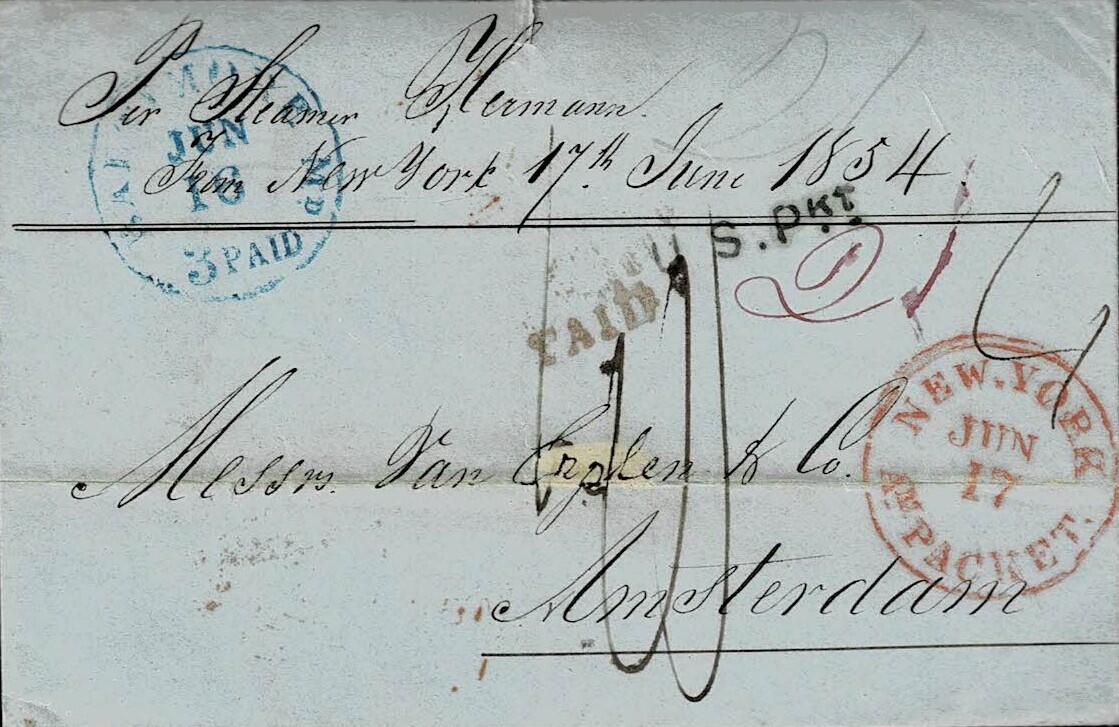 Per Steamer Hermann.
from New York 17th June 1854.
BALTIMORE MD
JUN
16
3 PAID
U.S.PKT
PAID
NEW.YORK
JUN
17
AM PACKET.
Messrs. Van & Co.
Amsterdam